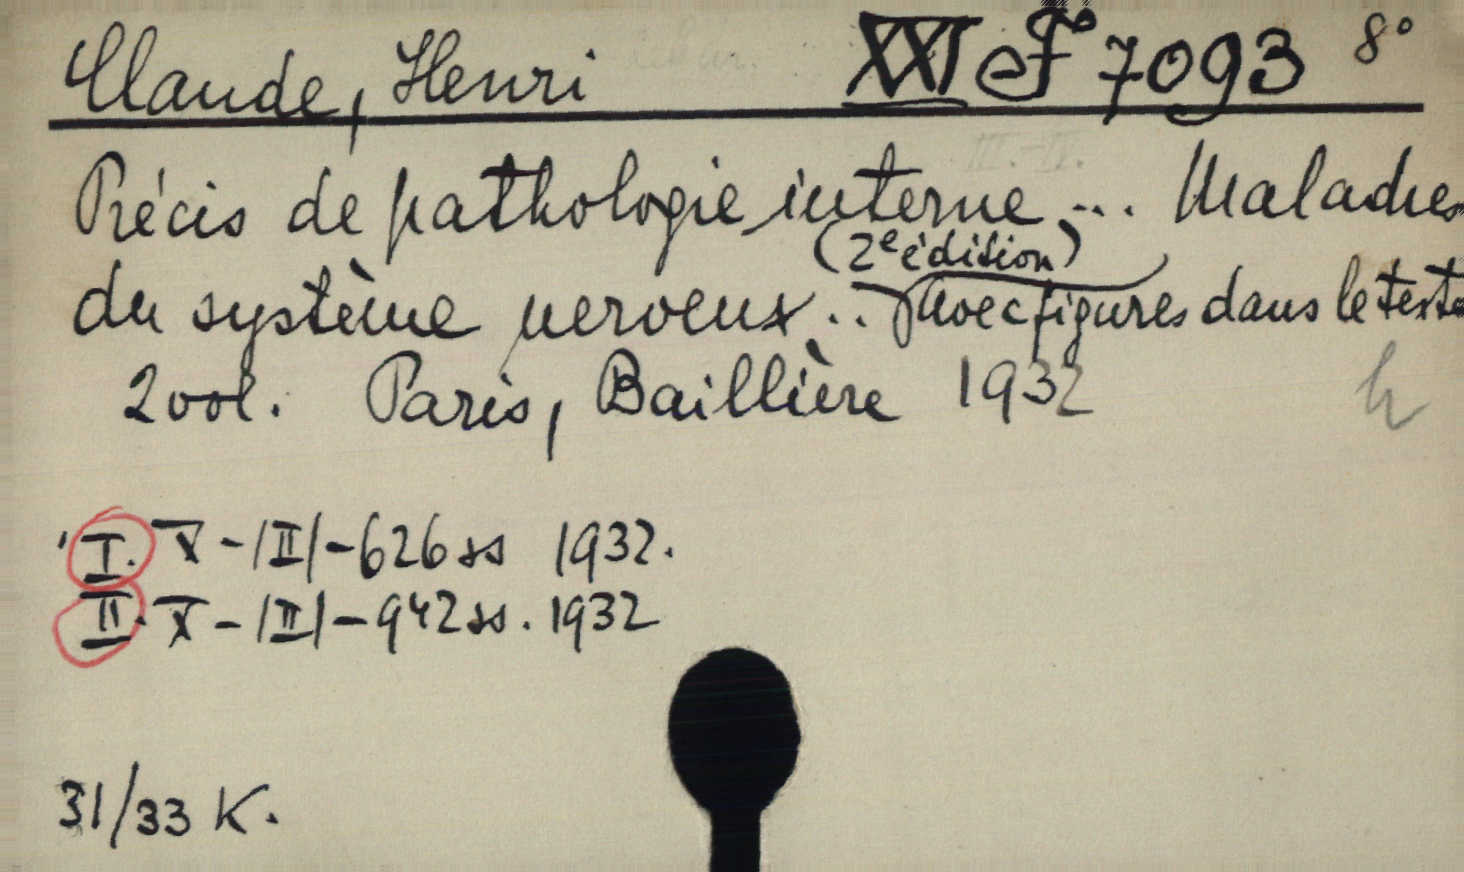 Claude, Henri XXI ef 7093 8°
Précis de pathologie interne ... Maladies
(2e édition)
du système nerveux .. Avec figures dans le texte
2 vol. Paris, Baillière 1932
I. X - |II| - 626 ss 1932.
II. X - |II| - 942 ss. 1932
31/33 K.